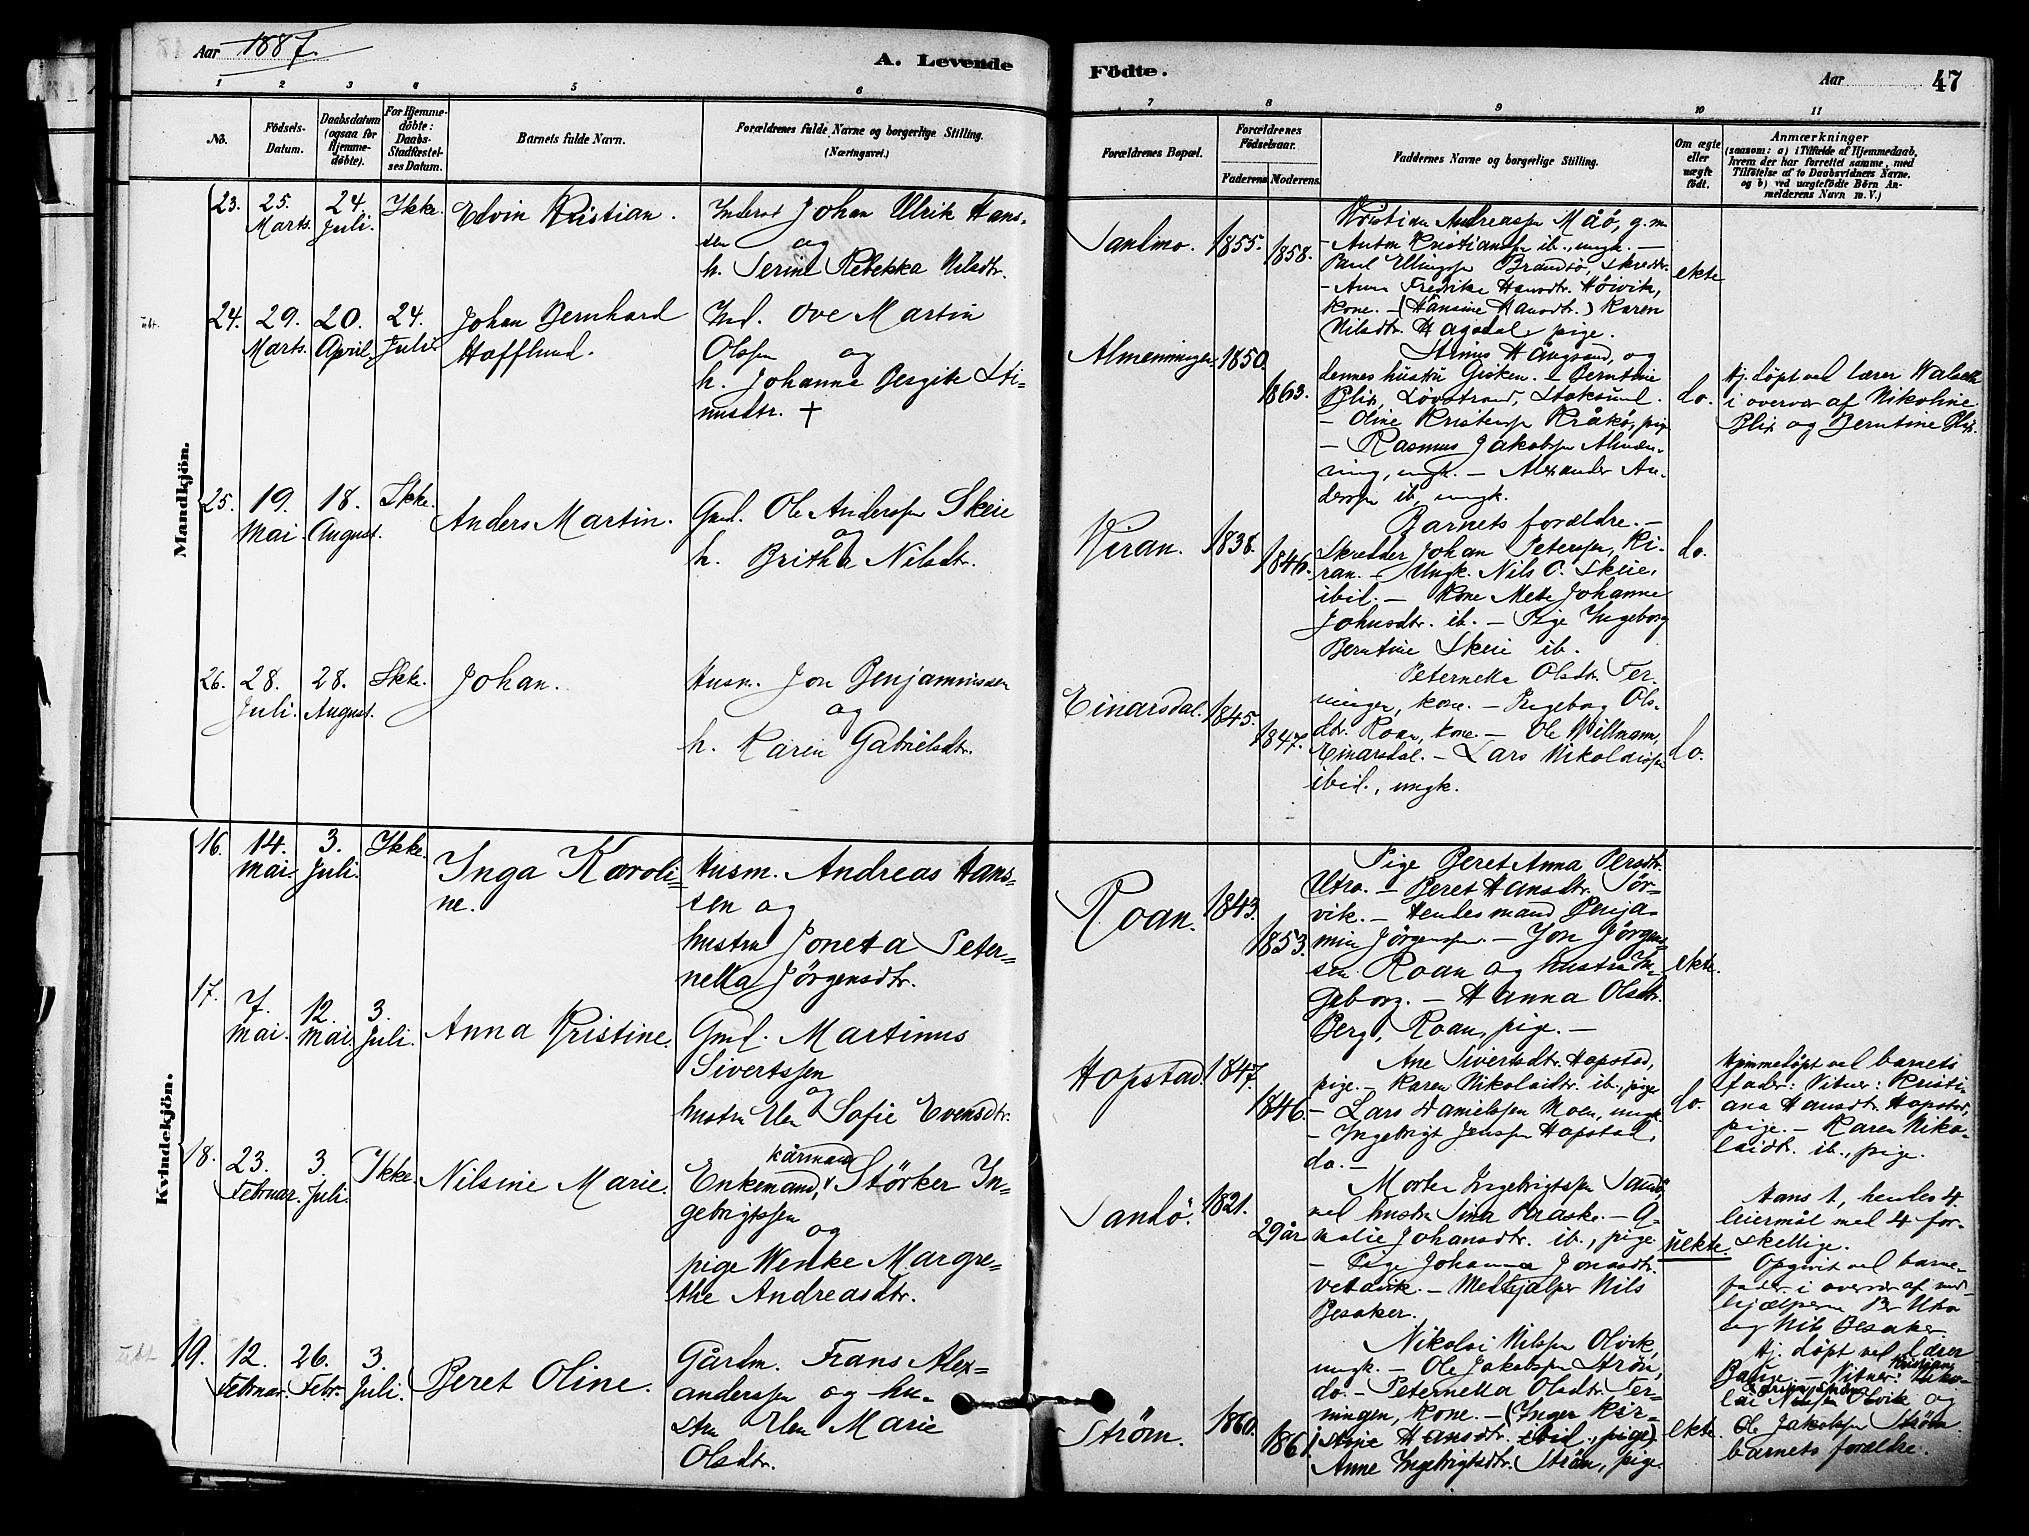 Aar 1887.
A. Levende
Födte.
Aar
47
1 2 3 4 5 6 7 8 9 10 11
No.
Födsels-
Datum.
Daabsdatum
(ogsaa for
Hjemme-
döbte).
For Hjemme-
döbte:
Daabs-
Stadfæstel-
ses Datum.
Barnets fulde Navn.
Forældrenes fulde Navne og borgerlige Stilling.
(Næringsvei.)
Forældrenes Bopæl.
Forældrenes
Födselsaar.
Faderens Moderens.
Faddernes Navne og borgerlige Stilling.
Om ægte
eller
uægte
födt.
Anmærkninger
(saasom: a) i Tilfælde af Hjemmedaab,
hvem der har forrettet samme, med
Tilföielse af to Daabsvidners Navne.
og b) ved uægtefödte Börn An-
melderens Navn m. V.)
Mandkjön.
23. 25. Marts. 24. Juli. Ikke. Edvin Kristian.
Inderst Johan Ulrik Hans-
sen og
h. Serine Rebekka Nilsdtr.
Sandmo. 1855. 1858.
Kristian Andreassen Måö, g.m.
- Anton Kristiansen ib., ungk. -
Paul Ellingsen Brandsö, Skredder
- Anna Fredrikke Hansdtr. Höivik,
kone. - (Hansine Hansdtr.) Karen
Nilsdtr. Hagadal, pige.
ekte
24. 29. Marts. 20. April. 24. Juli. Johan Bernhard
Hofflund.
Ind. Ove Martin
Olssen og
h. Johanna Bergite Sti-
nusdtr. +
Almenningen 1850. 1863.
Stinus Hångsand, og
dennes hustru Gjöken. - Berntine
Blix, Lövstrand, Stoksund.
- Oline Kristensen Kråkö, pig
- Rasmus Jakobsen Almen-
ning, ungk. - Alexander An-
derssen ib, ungk.
do.
Hj. döpt ved lærer Walseth
i overvær af Nikoline
Blix og Berntine Blix.
25. 19. Mai. 18. August. Ikke. Anders Martin.
Gmd. Ole Anderssen Skeie
og
h. Britha Nilsdtr.
Kiran. 1838. 1846.
Barnets forældre. -
Skredder Johan Peterssen, Ki-
ran. - Ungk. Nils O. Skeie,
ibid. - Kone Mette Johanne
Johnsdtr. ib. - Pige Ingeborg
Berntine Skeie ib.
do.
26. 28. Juli. 28. August. Ikke. Johan.
Husm. Jon Benjaminssen
og
h. Karen Gabrielsdtr.
Einarsdal. 1845. 1847.
Peternella Olsdtr. Ter-
ningen, kone. - Ingeborg Ols-
dtr. Roan, kone. - Ole Willmann,
Einarsdal. - Lars Nikolaissen
ibid., ungk.
do.
Kvindekjön.
16. 14. Mai. 3. Juli. Ikke. Inga Karoli-
ne.
Husm. Andreas Hans-
sen og
hustru Joneta Peter-
nella Jörgensdtr.
Roan. 1843. 1853.
Pige Beret Anna Persdtr.
Utro. - Beret Hansdtr. Sör-
vik. - Hendes mand Benja-
min Jörgensen. - Jon Jörgens-
sen Roan og hustru In-
geborg. - Hanna Olsdtr.
Berg, Roan, pige. -
ekte.
17. 7. Mai. 12. Mai. 3. Juli. Anna Kristine.
Gmd. Martinus
Sivertssen
og
hustru Elen Sofie Evensdtr.
Hopstad. 1847. 1846.
Ane Sivertsdtr. Hopstad,
pige. - Karen Nikolaidtr. ib., pige
- Lars Danielssen Moen, ungk.
- Ingebrigt Jenssen Hopstad,
do. -
do.
Hjemmedöpt ved barnets
fader: Vitner: Kristi-
ana Hansdtr. Hopstad,
pige. - Karen Niko-
laidt. ib., pige.
18. 23. Februar. 3. Juli. Ikke. Nilsine Marie.
kårmand
Enkemand, Störker In-
gebrigtssen
og
pige Wenke Margre-
the Andreasdtr.
Sandö. 1821. 29 år
Morten Ingebrigtssen Sandö
ved hustru Sina Kraske. -
Johansdtr. ib., pige
- Pige Johanna Jonasdtr.
- Medhjælper Nils
Besaker.
uekte.
Hans 1, hendes 4
leiermål med 4 for-
skellige.
Opgivet ved barne-
fader i overvær af med-
hjælperne
og Nils Besaker.
19. 12. Februar. 26. Febr. 3. Juli. Beret Oline.
Gårdm. Frans Alex-
anderssen og hu-
stru Elen Marie
Olsdtr.
Ström. 1860. 1861
Nikolai Nilssen Olvik,
ungk. - Ole Jakobssen Ström,
do. - Peternella Olsdtr. Ter-
ningen, kone. - (Inger Kir-
stine Hansdtr. ibid., pige)
Anne Ingebrigtsdtr. Ström, pige.
ekte.
Hj. döpt ved lærer
Bauge. - Vitner: Niko-
lai Nilssen Olvik og
Ole Jakobssen Ström
barnets forældre.